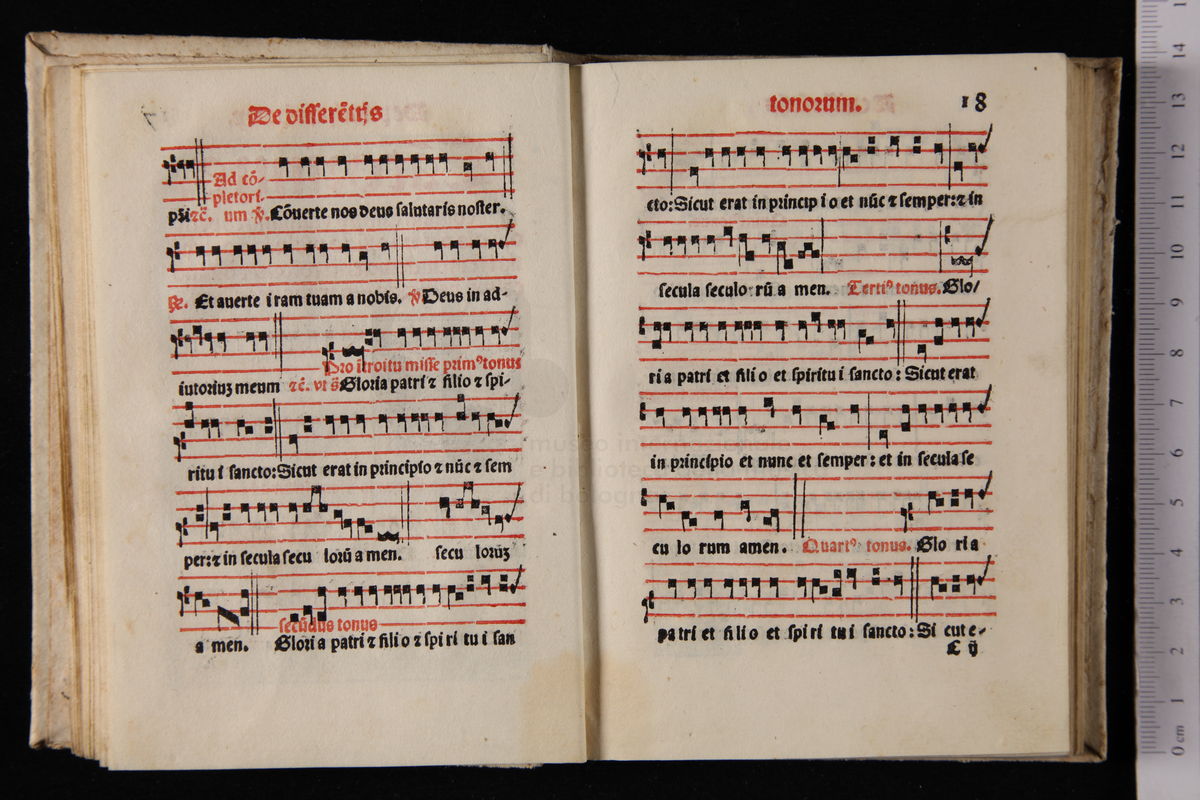 De differẽtijs
Ad cõ-
pletori.
p̄ȝi ⁊c̃. um ℣. Cõuerte nos deus salutaris noster.
℟. Et auerte iram tuam a nobis. ℣ Deus in ad-
Pro ĩtroitu misse primꝰ tonus
iutoriuȝ meum ⁊c̃. vt s̃ Gloria patri ⁊ filio ⁊ spi-
ritu i sancto: Sicut erat in principio ⁊ nũc ⁊ sem
per: ⁊ in secula secu lorũ a men. secu loruȝ
a men. secũdus tonus
Glori a patri ⁊ fili o ⁊ spi ri tu i san
tonorum. 18
cto: Sicut erat in princip i o et nũc ⁊ semper: ⁊ in
secula seculo rũ a men. Tertiꝰ tonus. Glo/
ri a patri et fili o et spiritu i sancto: Sicut erat
in principio et nunc et semper: et in secula se
cu lo rum amen. Quartꝰ tonus. Glo ri a
patri et fili o et spi ri tu i sancto: Si cut e-
C ij
museo in
e bibliotec
di bologn
0 cm 1 2 3 4 5 6 7 8 9 10 11 12 13 14